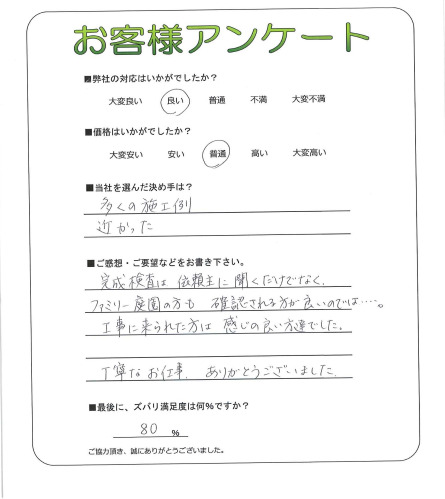 お客様アンケート
■弊社の対応はいかがでしたか？
大変良い 良い 普通 不満 大変不満
■価格はいかがでしたか？
大変安い 安い 普通 高い 大変高い
■当社を選んだ決め手は？
多くの施工例
近かった
■ご感想・ご要望などをお書き下さい。
完成検査は 依頼主に聞くだけでなく、
ファミリー庭園の方も 確認される方が良いのでは‥‥。
工事に来られた方は 感じの良い方達でした。
丁寧なお仕事、ありがとうございました。
■最後に、ズバリ満足度は何%ですか？
80 %
ご協力頂き、誠にありがとうございました。